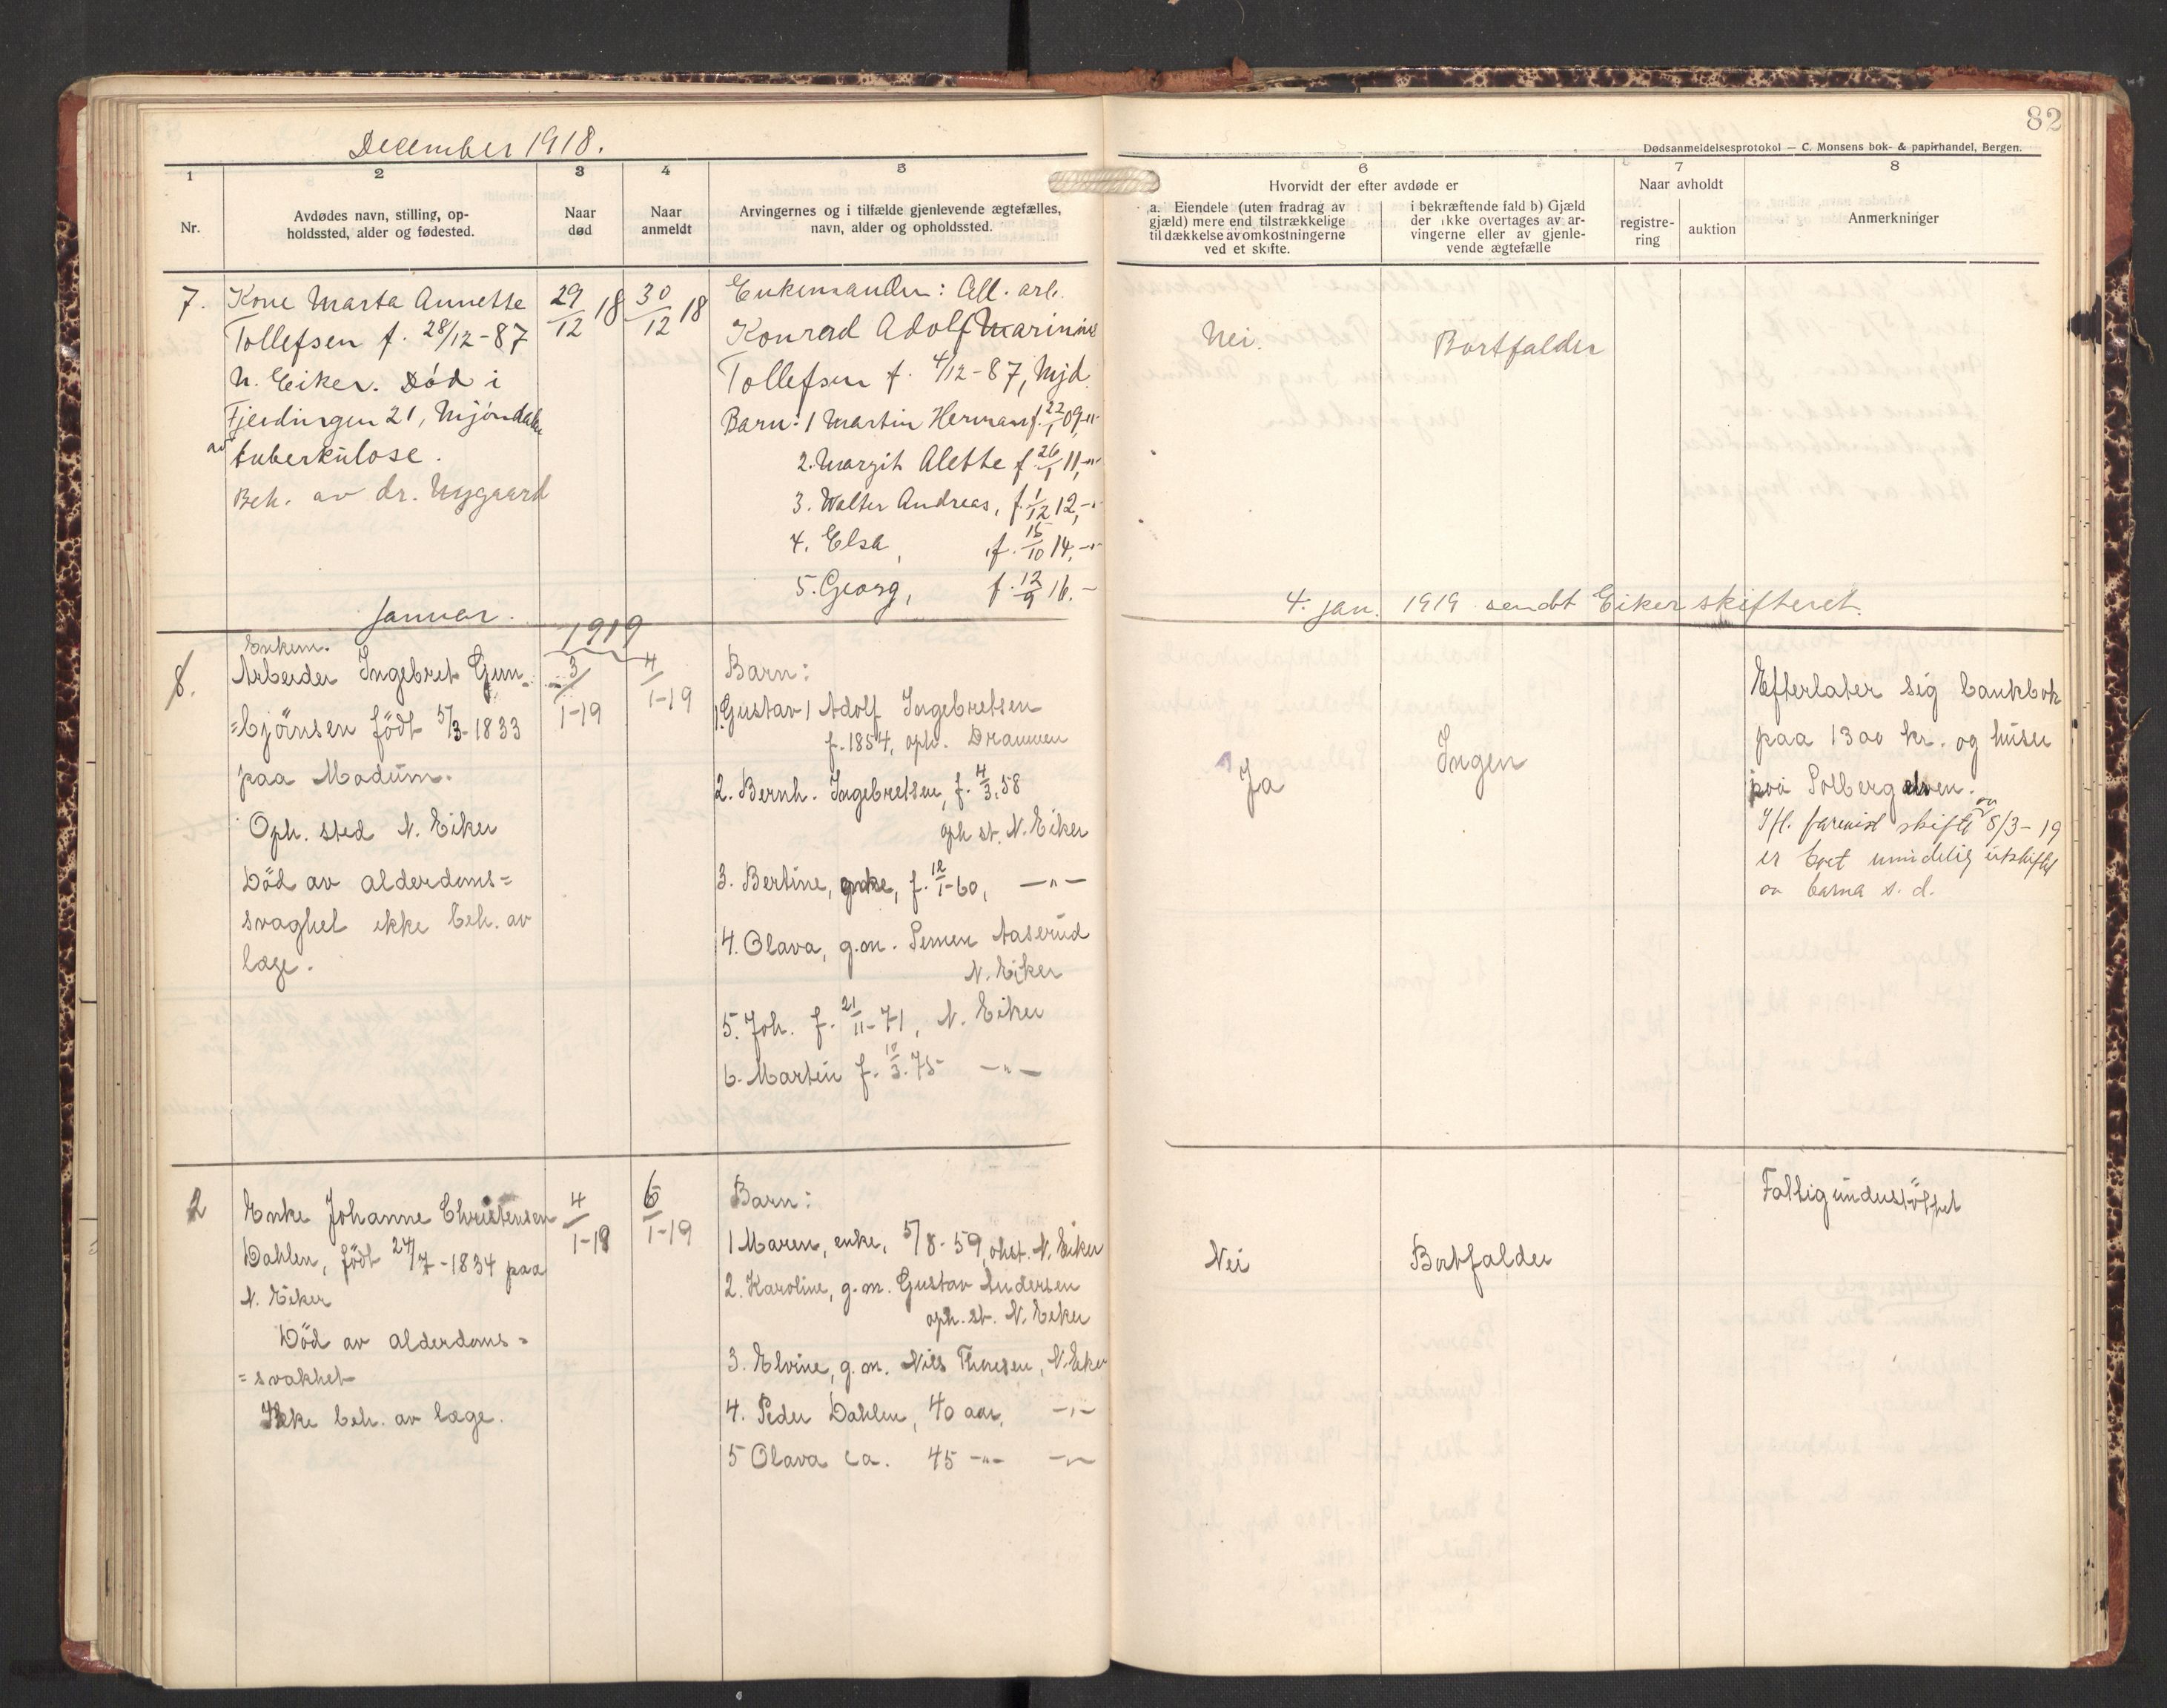 82
December 1918.
Dødsanmeldelsesprotokol — C. Monsens bok- & papirhandel, Bergen.
1
2
3
4
5
6
7
8
Nr.
Avdødes navn, stilling, op-
holdssted, alder og fødested.
Naar
død
Naar
anmeldt
Arvingernes og i tilfælde gjenlevende ægtefælles,
navn, alder og opholdssted.
Hvorvidt der efter avdøde er
a. Eiendele (uten fradrag av
gjæld) mere end tilstrækkelige
til dækkelse av omkostningerne
ved et skifte.
i bekræftende fald b) Gjæld
der ikke overtages av ar-
vingerne eller av gjenle-
vende ægtefælle
Naar avholdt
registre-
ring
auktion
Anmerkninger
7.
Kone Marta Annette
Tollefsen f. 28/12-87
N. Eiker. Død i
Fjerdingen 21, Mjøndalen
av tuberkulose.
Beh. av dr. Nygaard
29/12 18
30/12 18
Enkemanden: All. arb.
Konrad Adolf Marinius
Tollefsen f. 4/12-87, Mjd.
Barn: 1 Martin Herman f. 22/1 09, -"-
2. Margit Alette f. 26/1 11, -"-
3. Walter Andreas, f. 1/12 12, -"-
4. Elsa, f. 15/10 14, -"-
5. Georg, f. 12/9 16. -
Nei.
Bortfalder
4. jan. 1919 sendt Eiker skifteret.
Januar. 1919
8.
Enkem.
Arbeider Ingebret Gun-
=björnsen födt 5/3-1833
paa Modum.
Oph. sted N. Eiker
Död av alderdoms=
svaghet ikke beh. av
læge.
3/1-19
4/1-19
Barn:
1. Gustav Adolf Ingebretsen
f. 1854, oph. Drammen
2. Bernh. Ingebretsen, f. 4/3.58
oph st. N. Eiker
3. Bertine, enke, f. 12/1-60, -"-
4. Olava, g.m. Aaserud
N. Eiker
5. Joh. f. 21/11-71, N. Eiker
6. Martin f. 10/3.75 -"-
Ja
Ingen
Efterlater sig bankbok
paa 1300 kr. og huser
paa Solbergelven.
Ifl. skifte av 8/3-19
er boet utskiftet
av barna s. d.
2
Enke Johanne Christensen
Dahlen, födt 24/7-1834 paa
N. Eiker
Död av alderdoms=
=svakhet
Ikke beh. av læge.
4/1-19
6/1-19
Barn:
1 Maren, enke, 5/8-59, N. Eiker
2. Karoline, g.m. Gustav Andersen
oph. st. N. Eiker
3. Elvine, g.m. Nils Thoresen, N. Eiker
4. Peder Dahlen, 40 aar, -"-
5 Olava ca. 45 -"- -"-
Nei
Bortfalder
Fattigunderstöttet